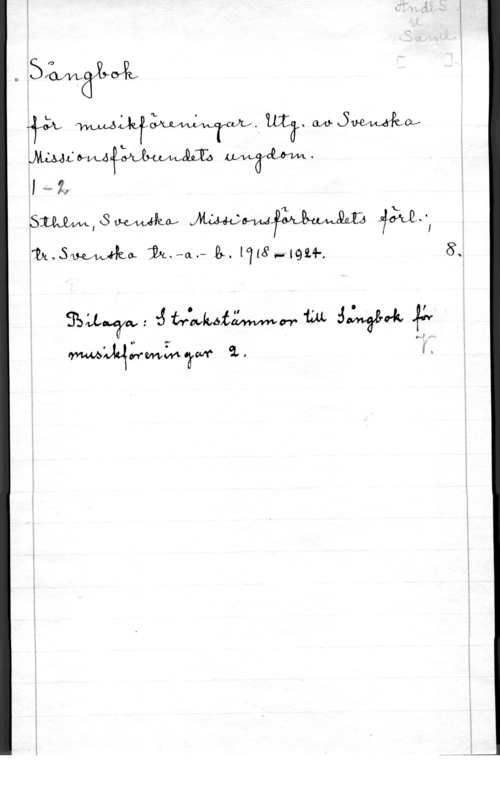 Andl S
Saml.
[ ].
Sångbok
för musikföreningar. Utg. av Svenska
Missionsförbundets ungdom.
1-2
Sthlm, Svenska Missionsförbundets förl.;
tr. Svenska tr.-a.-b. 1918-1924. 8.
Bilaga: Stråkstämmor till Sångbok för
musikföreningar 2.